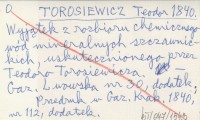 a
TOROSIEWICZ Teodor 1840.
Wyjątek z rozbioru chemicznego
wód mineralnych szczawnic-
kich, uskutecznionego przez
Teodora Torosiewicza.
Gaz. Lwowska nr 30, dodatek;
Przedruk w Gaz. Krak. 1840,
nr 112, dodatek.